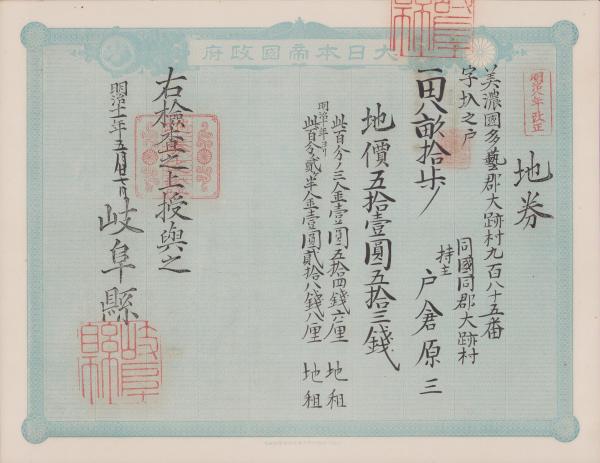 大日本帝國政府
明治八年改正
地券
美濃國多藝郡大跡村九百八十五番
字圦之戸
同國同郡大跡村
持主 戸倉原三
一田八畝拾歩
地價五拾壹圓五拾三錢
此百分ノ三金壹圓五拾四錢六厘 地租
明治十年ヨリ
此百分貳半金壹圓貳拾八錢八厘 地租
右檢査之上授與之
明治十一年五月
岐阜縣